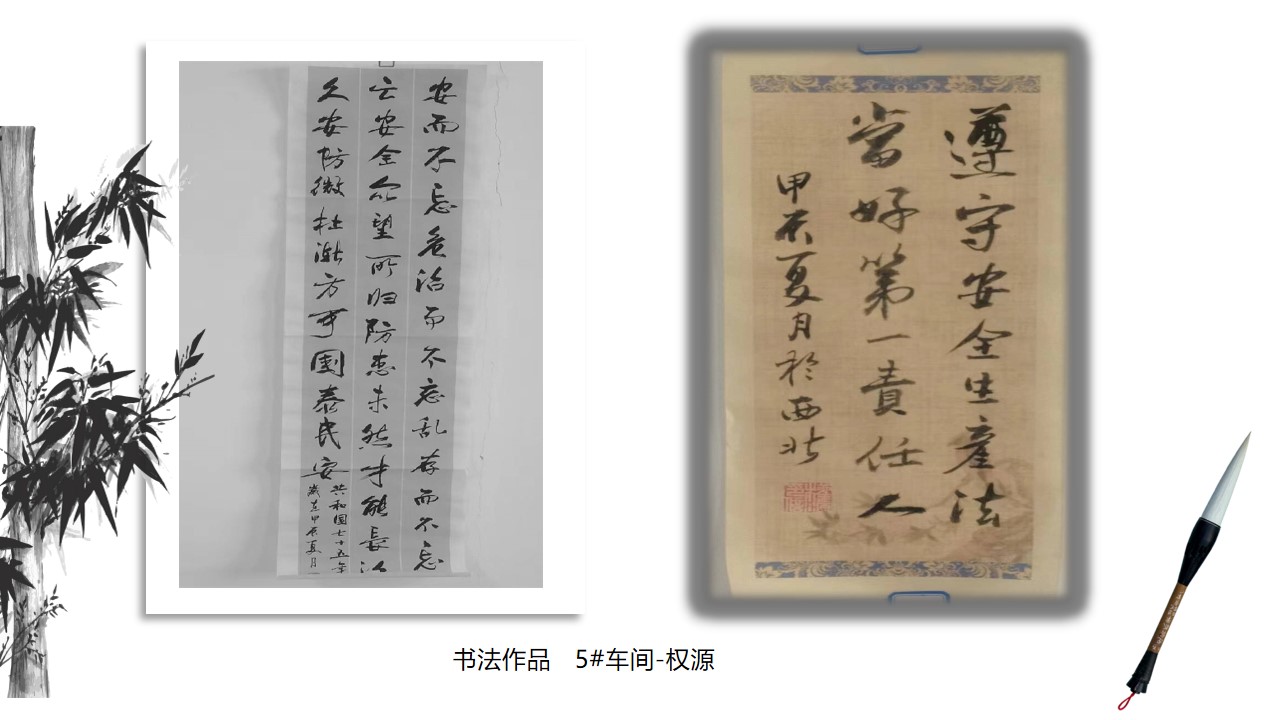 安而不忘危治而不忘乱存而不忘
亡安全众望所归防患未然才能長治
久安防微杜漸方可國泰民安
共和国七十五年
歲在甲辰夏月
遵守安全生產法
當好第一責任人
甲辰夏月於西北
书法作品 5#车间-权源